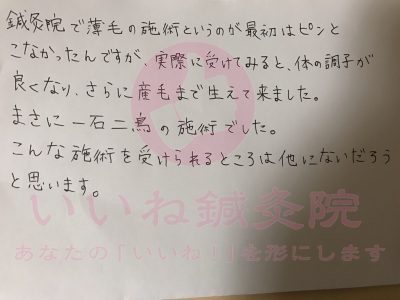 鍼灸院で薄毛の施術というのが最初はピンと
こなかったんですが、実際に受けてみると、体の調子が
良くなり、さらに産毛まで生えて来ました。
まさに一石二鳥の施術でした。
こんな施術を受けられるところは他にないだろう
と思います。
いいね鍼灸院
あなたの「いいね!」を形にします